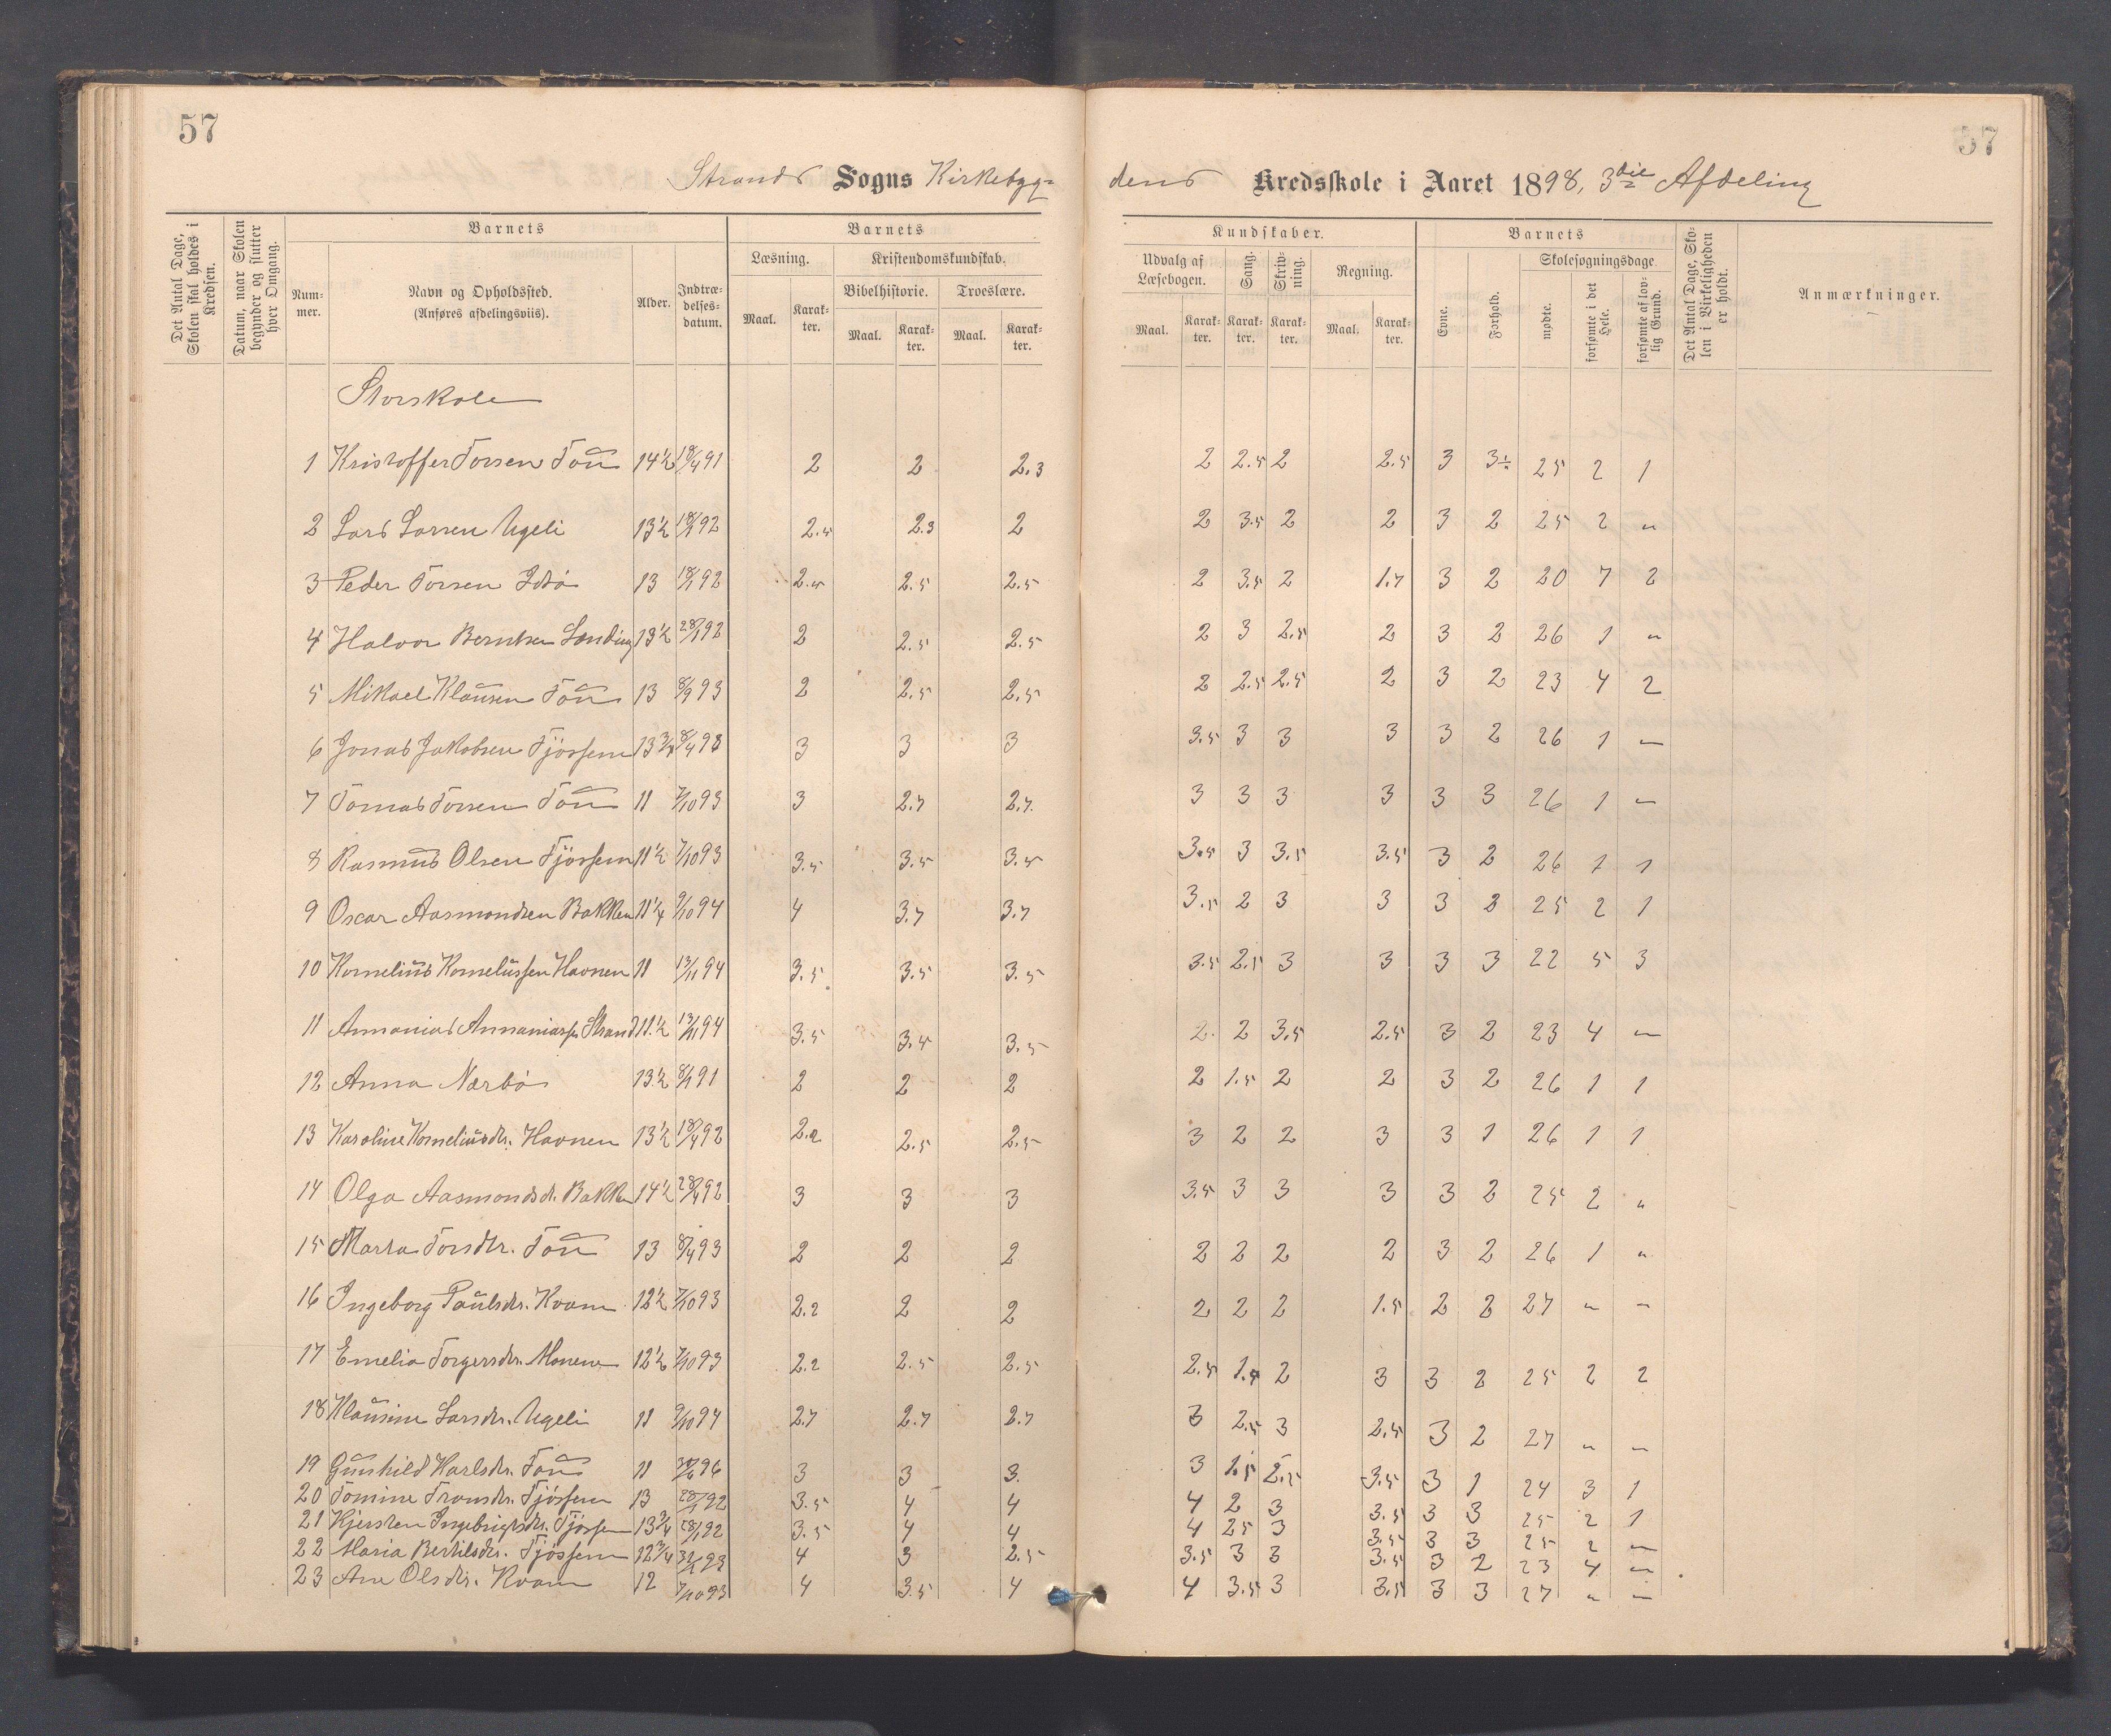 57
57
Strands Sogns Kirkebyg=
dens Kredsskole i Aaret 1898, 3die Afdeling
Det Antal Dage, Skolen skal holdes i Kredsen.
Datum, naar Skolen begynder og slutter hver Omgang.
Barnets
Nummer.
Navn og Opholdssted. (Anføres afdelingsviis).
Alder.
Indtrædelsesdatum.
Barnets
Læsning.
Kristendomskundskab.
Bibelhistorie. Troeslære.
Maal. Karakter. Maal. Karakter. Maal. Karakter.
Kundskaber.
Udvalg af Læsebogen. Sang. Skrivning. Regning.
Maal. Karakter. Karakter. Karakter. Maal. Karakter.
Barnets
Evne. Forhold.
Skolesøgningsdage
mødte. forsømte i det Hele. forsømte af lovlig Grund.
Det Antal Dage, Skolen i Virkeligheden er holdt.
Anmærkninger.
Storskole
1 Kristoffer Torsen Tou 14½ 18/4 91 2 2 2.3 2 2.5 2 2.5 3 3 25 2 1
2 Lars Larsen Ugeli 13½ 18/1 92 2.5 2.3 2 2 3.5 2 2 3 2 25 2 "
3 Peder Torsen Idsö 13 18/1 92 2.5 2.5 2.5 2 3.5 2 1.7 3 2 20 7 2
4 Halvor Berntsen Landing 13½ 28/1 92 2 2.5 2.5 2 3 2.5 2 3 2 26 1 "
5 Mikael Klausen Tou 13 8/9 93 2 2.5 2.5 2 2.5 2.5 2 3 2 23 4 2
6 Jonas Jakobsen Tjössem 13¾ 8/4 93 3 3 3 3.5 3 3 3 3 2 26 1 "
7 Tomas Torsen Tou 11 7/10 93 3 2.7 2.7 3 3 3 3 3 3 26 1 "
8 Rasmus Olsen Tjössem 11½ 7/10 93 3.5 3.5 3.5 3.5 3 3.5 3.5 3 2 26 1 1
9 Oscar Aasmondsen Bakken 11¼ 9/10 94 4 3.7 3.7 3.5 2 3 3 3 2 25 2 1
10 Kornelius Korneliussen Havnen 11 13/11 94 3.5 3.5 3.5 3.5 2.5 3 3 3 3 22 5 3
11 Annanias Annaniassen Strand 11½ 13/11 94 3.5 3.5 3.5 2 2 3.5 2.5 3 2 23 4 "
12 Anna Nærbö 13½ 8/1 91 2 2 2 2 1.5 2 2 3 2 26 1 1
13 Karoline Korneliusdtr. Havnen 13½ 18/4 92 2.2 2.5 2.5 3 2 2 3 3 1 26 1 1
14 Olga Aasmondsd. Bakken 14½ 28/4 92 3 3 3 3.5 3 3 3 3 2 25 2 "
15 Marta Torsdtr. Tou 13 8/4 93 2 2 2 2 2 2 2 3 2 26 1 "
16 Ingeborg Paulsdtr. Kvam 12½ 7/10 93 2.2 2 2 2 2 2 1.5 2 2 27 " "
17 Emelia Torgersdtr. Monene 12½ 7/10 93 2.2 2.5 2.5 2.5 1.5 2 3 3 2 25 2 2
18 Klausine Larsdtr. Ugeli 11 9/10 94 2.7 2.7 2.7 3 2.5 3 2.5 3 2 27 " "
19 Gunhild Karlsdtr. Tou 11 96 3 3 3 3 1.5 2.5 3.5 3 1 24 3 1
20 Tomine Transdtr. Tjössem 13 28/1 92 3.5 4 4 4 2 3 3.5 3 3 25 2 1
21 Kjersten Ingebrigtsdtr. Tjössem 13¾ 28/1 92 3.5 4 4 4 2.5 3 3.5 3 3 25 2 "
22 Maria Bertilsdtr. Tjössem 12¾ 93 4 3 2.5 3.5 3 3 3.5 3 2 23 4 "
23 Ane Olsdtr. Kvam 12 7/10 93 4 3.5 4 4 3.5 3 3.5 3 3 27 " "